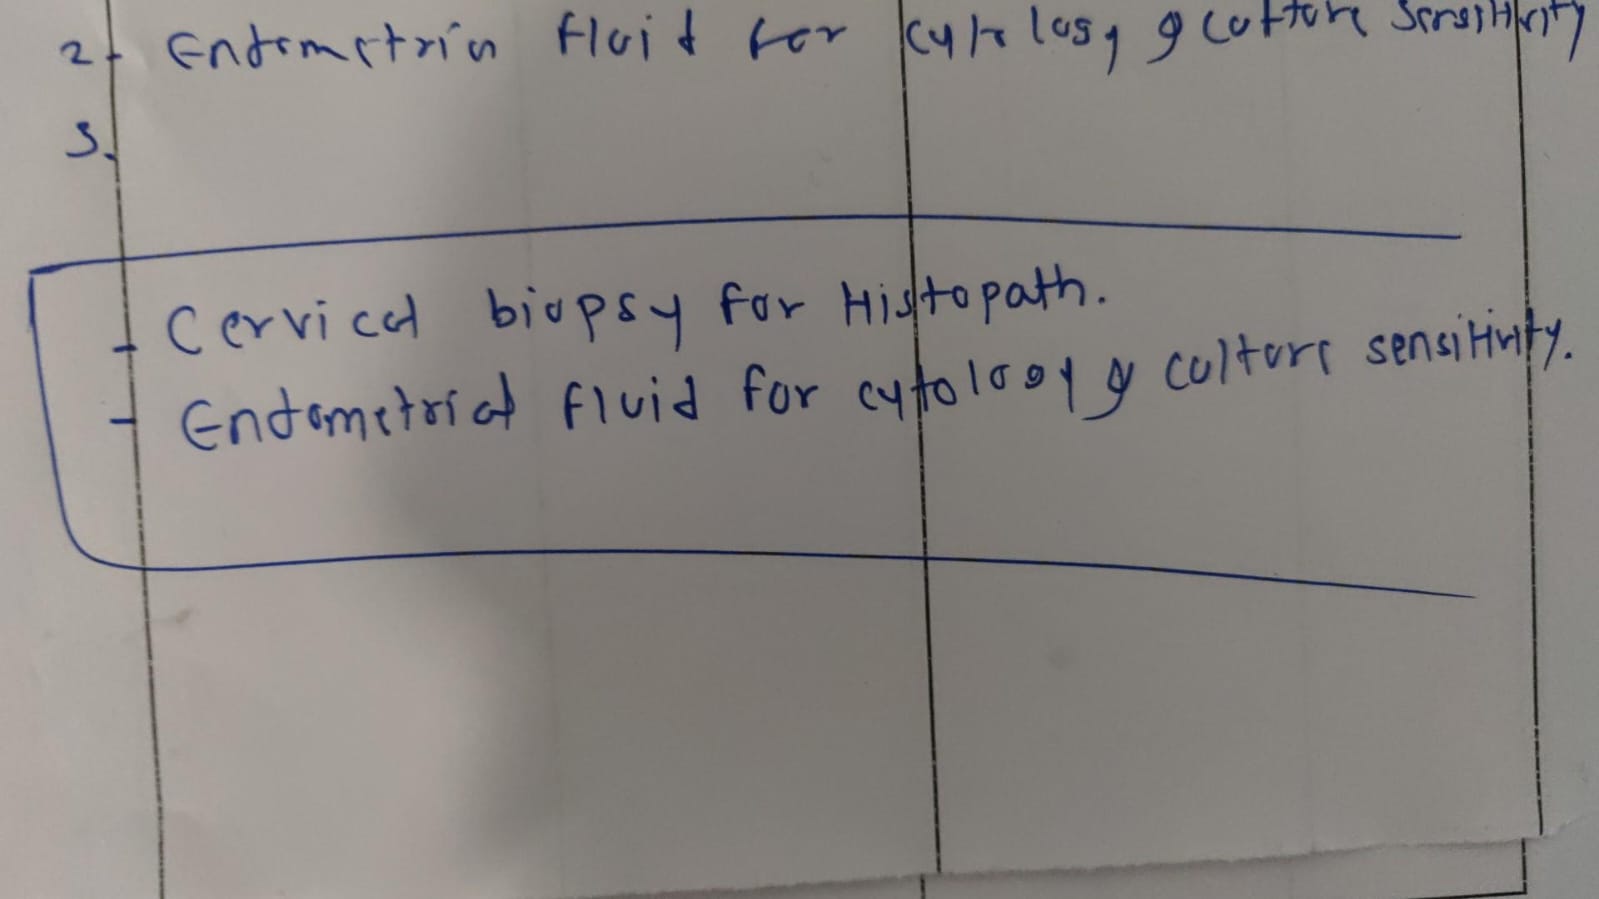 2. Endometrial fluid for cytology & culture sensitivity
3.
- Cervical biopsy for Histopath.
- Endometrial fluid for cytology & culture sensitivity.